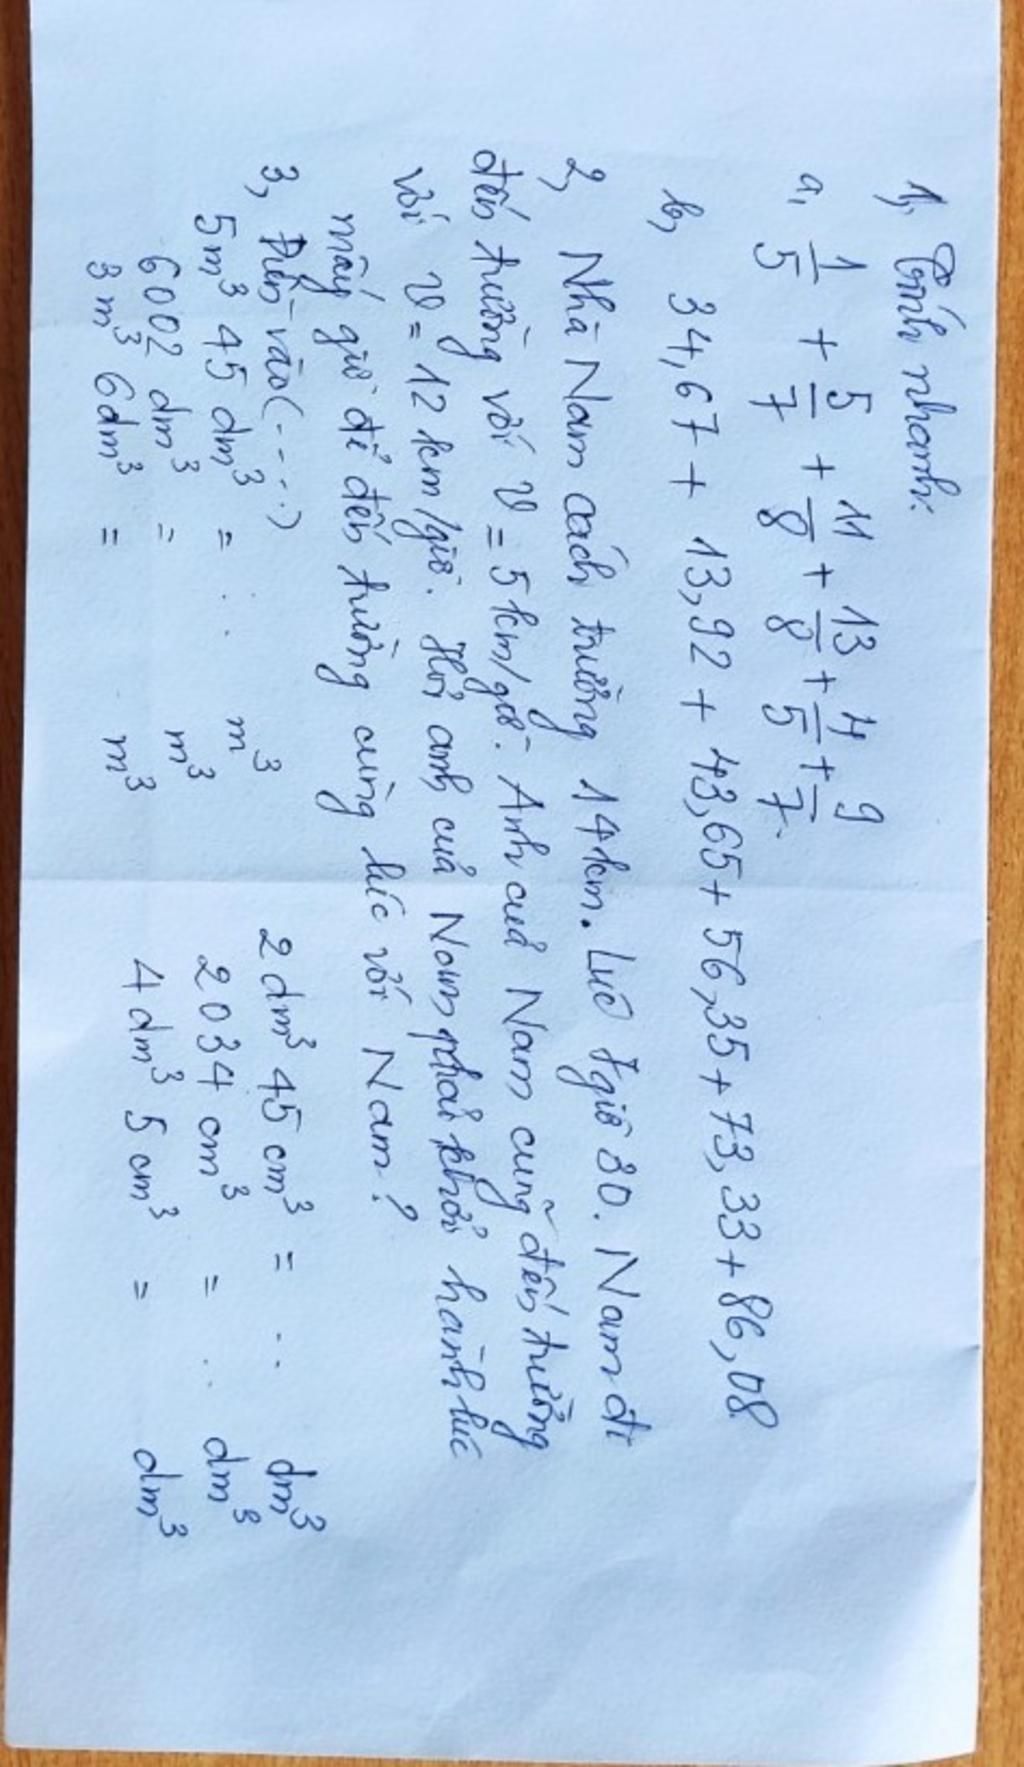 1, Tính nhanh:
a, 1/5 + 5/7 + 11/8 + 13/8 + 4/5 + 9/7.
b, 34,67 + 13,92 + 43,65 + 56,35 + 73,33 + 86,08
2, Nhà Nam cách trường 14km. Lúc 7giờ 30. Nam đi
đến trường với v = 5km/giờ. Anh của Nam cũng đến trường
với v = 12 km/giờ. Hỏi anh của Nam phải khởi hành lúc
mấy giờ để đến trường cùng lúc với Nam?
3, Điền vào (....)
5m³ 45 dm³ = ... m³ 2dm³ 45 cm³ = ... dm³
6002 dm³ = m³ 2034 cm³ = ... dm³
3m³ 6dm³ = m³ 4dm³ 5cm³ = dm³